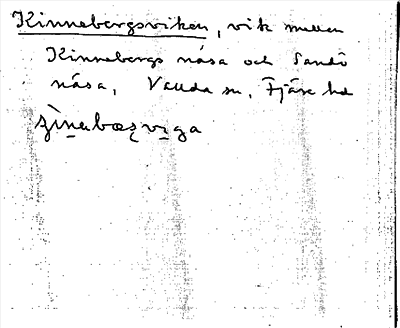 Kinnebergsviken, vik mellan
Kinnebergs nåsa och Sandö
nåsa, Vallda sn, Fjäre hd